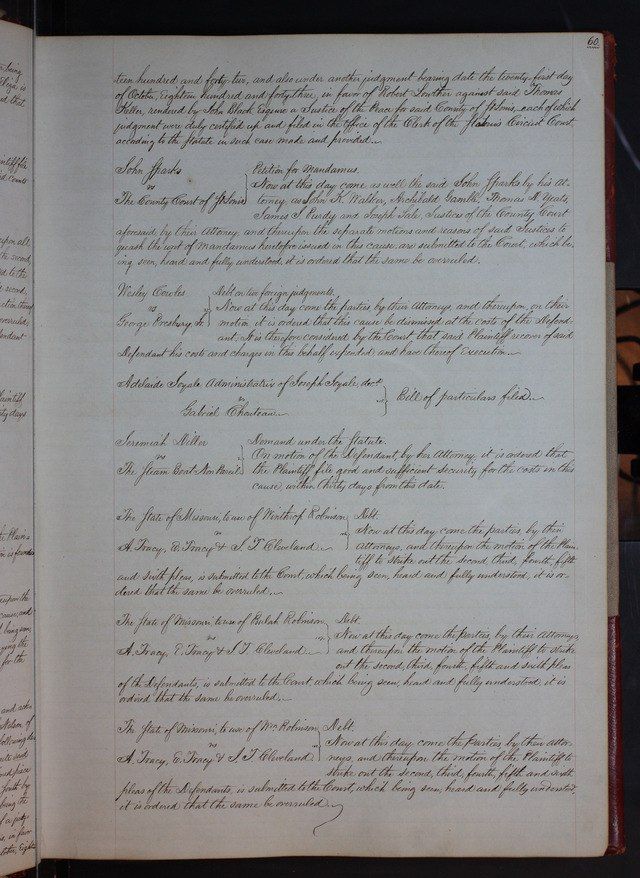 60.
teen hundred and forty two, and also under another judgment bearing date the twenty-first day
of October, Eighteen hundred and forty three, in favor of Robert Lowther against said Thomas
rendered by John Black Esquire a Justice of the Peace for said County of St Louis, each of which
judgment were duly certified up and filed in the Office of the Clerk of the St Louis Circuit Court
according to the Statute in such case made and provided.
John Sparks
vs
The County Court of St Louis
Petition for Mandamus.
Now at this day came as well the said John Sparks by his At-
torney, as John K. Walker, Archibald Gamble, Thomas Yeats,
James S. Purdy and Joseph Sale, Justices of the County Court
aforesaid by their Attorney, and thereupon the separate motions and reasons of said Justices to
quash the writ of Mandamus heretofore issued in this cause, are submitted to the Court, which be-
ing seen, heard and fully understood, it is ordered that the same be overruled.
Wesley Cowles
vs
George Evesbury, Jr
Debt on two foreign judgments.
Now at this day come the parties by their Attorneys, and thereupon, on their
motion it is ordered that this cause be dismissed at the costs of the Defend-
ant. It is therefore considered by the Court that said Plaintiff recover of said
Defendant his costs and charges in this behalf expended and have thereof Execution.
Adelaide Soyale Administratrix of Joseph Soyale, decd
vs
Gabriel Chouteau
Bill of particulars filed.
Jeremiah Miller
vs
The Steam Boat Non Pareil
Demand under the Statute.
On motion of the Defendant, by her Attorney, it is ordered that
the Plaintiff file good and sufficient security for the costs in this
cause, within thirty days from this date.
The State of Missouri, to use of Winthrop Robinson
vs
A. Tracy, E. Tracy & S. T. Cleveland
Debt.
Now at this day, come the parties by their
Attorneys, and thereupon the motion of the Plain-
tiff to strike out the second, third, fourth, fifth
and sixth pleas, is submitted to the Court, which being seen, heard and fully understood, it is or-
dered that the same be overruled.
The State of Missouri to use of Bulah Robinson
vs
A. Tracy, E. Tracy & S. T. Cleveland
Debt.
Now at this day come the Parties, by their Attorneys
and thereupon the motion of the Plaintiff to strike
out the second, third, fourth, fifth and sixth pleas
of the Defendants, is submitted to the Court, which being seen, heard and fully understood, it is
ordered that the same be overruled.
The State of Missouri, to use of Wm Robinson
vs
A. Tracy, E. Tracy & S. T. Cleveland
Debt.
Now at this day come the Parties, by their Attor-
neys, and thereupon the motion of the Plaintiff to
strike out the second, third, fourth, fifth and sixth
pleas of the Defendants, is submitted to the Court, which being seen, heard and fully understood,
it is ordered that the same be overruled.